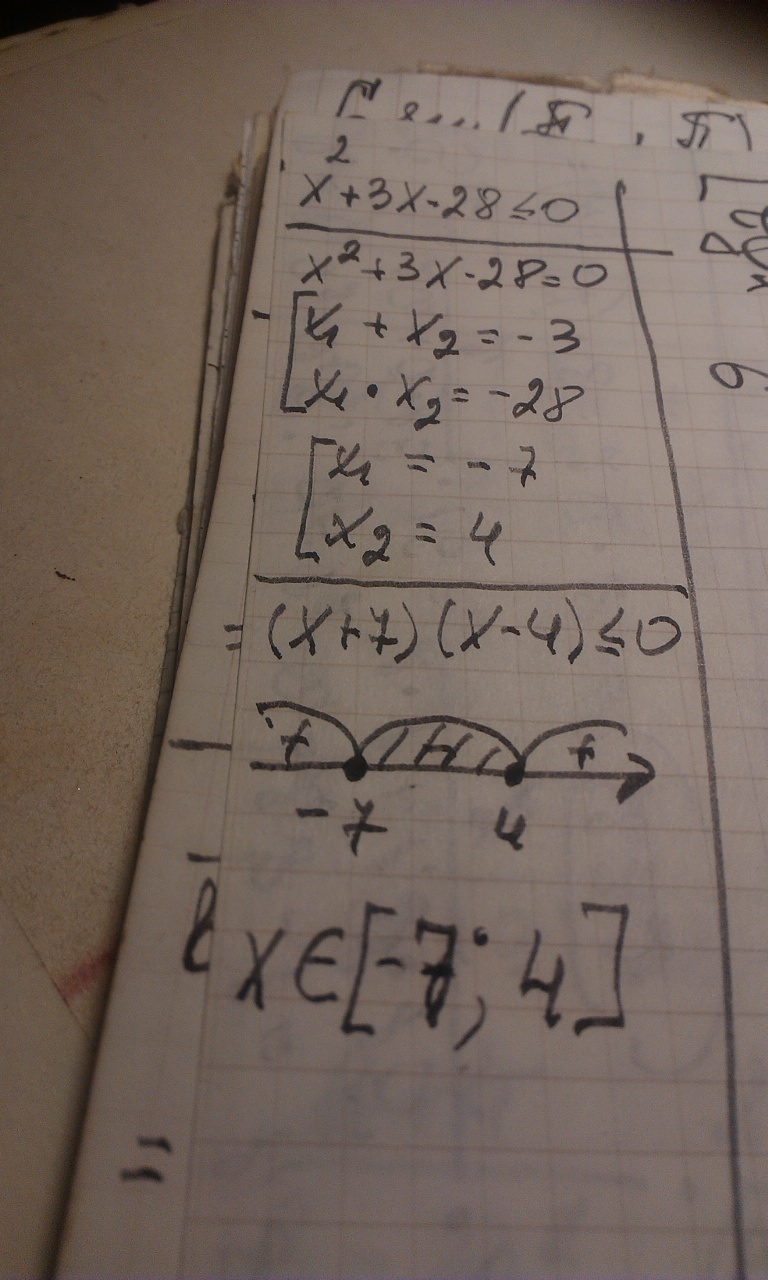 x²+3x-28≤0
x²+3x-28=0
x₁ + x₂ = -3
x₁ • x₂ = -28
x₁ = -7
x₂ = 4
= (x+7) (x-4) ≤0
+ - +
-7 4
x∈[-7; 4]
=